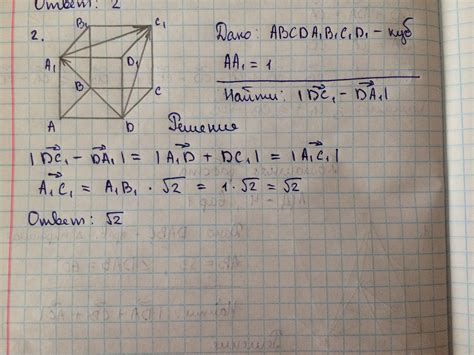 Ответ: 2
2.
B₁
C₁
A₁
D₁
B
C
A
D
Дано: ABCDA₁B₁C₁D₁ - куб
AA₁ = 1
Найти: |DC₁ - DA₁|
Решение
|DC₁ - DA₁| = |A₁D + DC₁| = |A₁C₁|
A₁C₁ = A₁B₁ · √2 = 1·√2 = √2
Ответ: √2